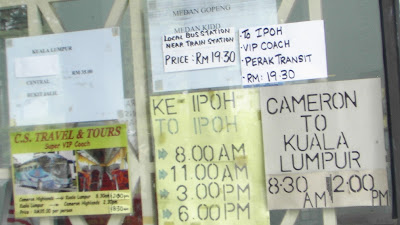 KUALA LUMPUR
CENTRAL
MEDAN GOPENG
MEDAN KIDD
LOCAL BUS STATION
NEAR TRAIN STATION
PRICE: RM 19.30
-TO IPOH
-VIP COACH
-PERAK TRANSIT
-RM: 19.30
C.S. TRAVEL & TOURS
Super VIP Coach
Cameron Highlands
Kuala Lumpur
KE IPOH
TO IPOH
8.00 AM
11.00 AM
3.00 PM
6.00 PM
CAMERON
TO
KUALA
LUMPUR
8:30 AM
2:00 PM